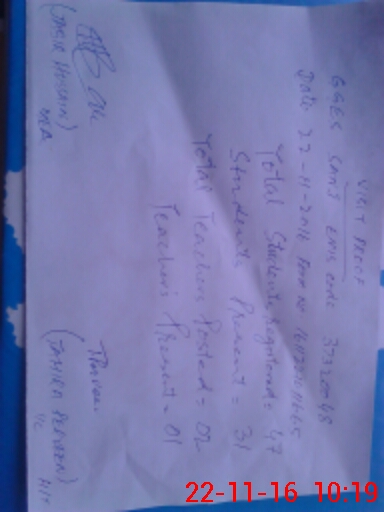 VISIT PROOF
GGES SANJ EMIS code 37320048
Date 22-11-2016 Form No
Total Students registered = 47
Students Present = 31
Total Teachers Posted = 02
Teachers Present = 01
(TAHIR HUSSAIN)
MEA
(TAHIRA PERVEEN)
22-11-16 10:19